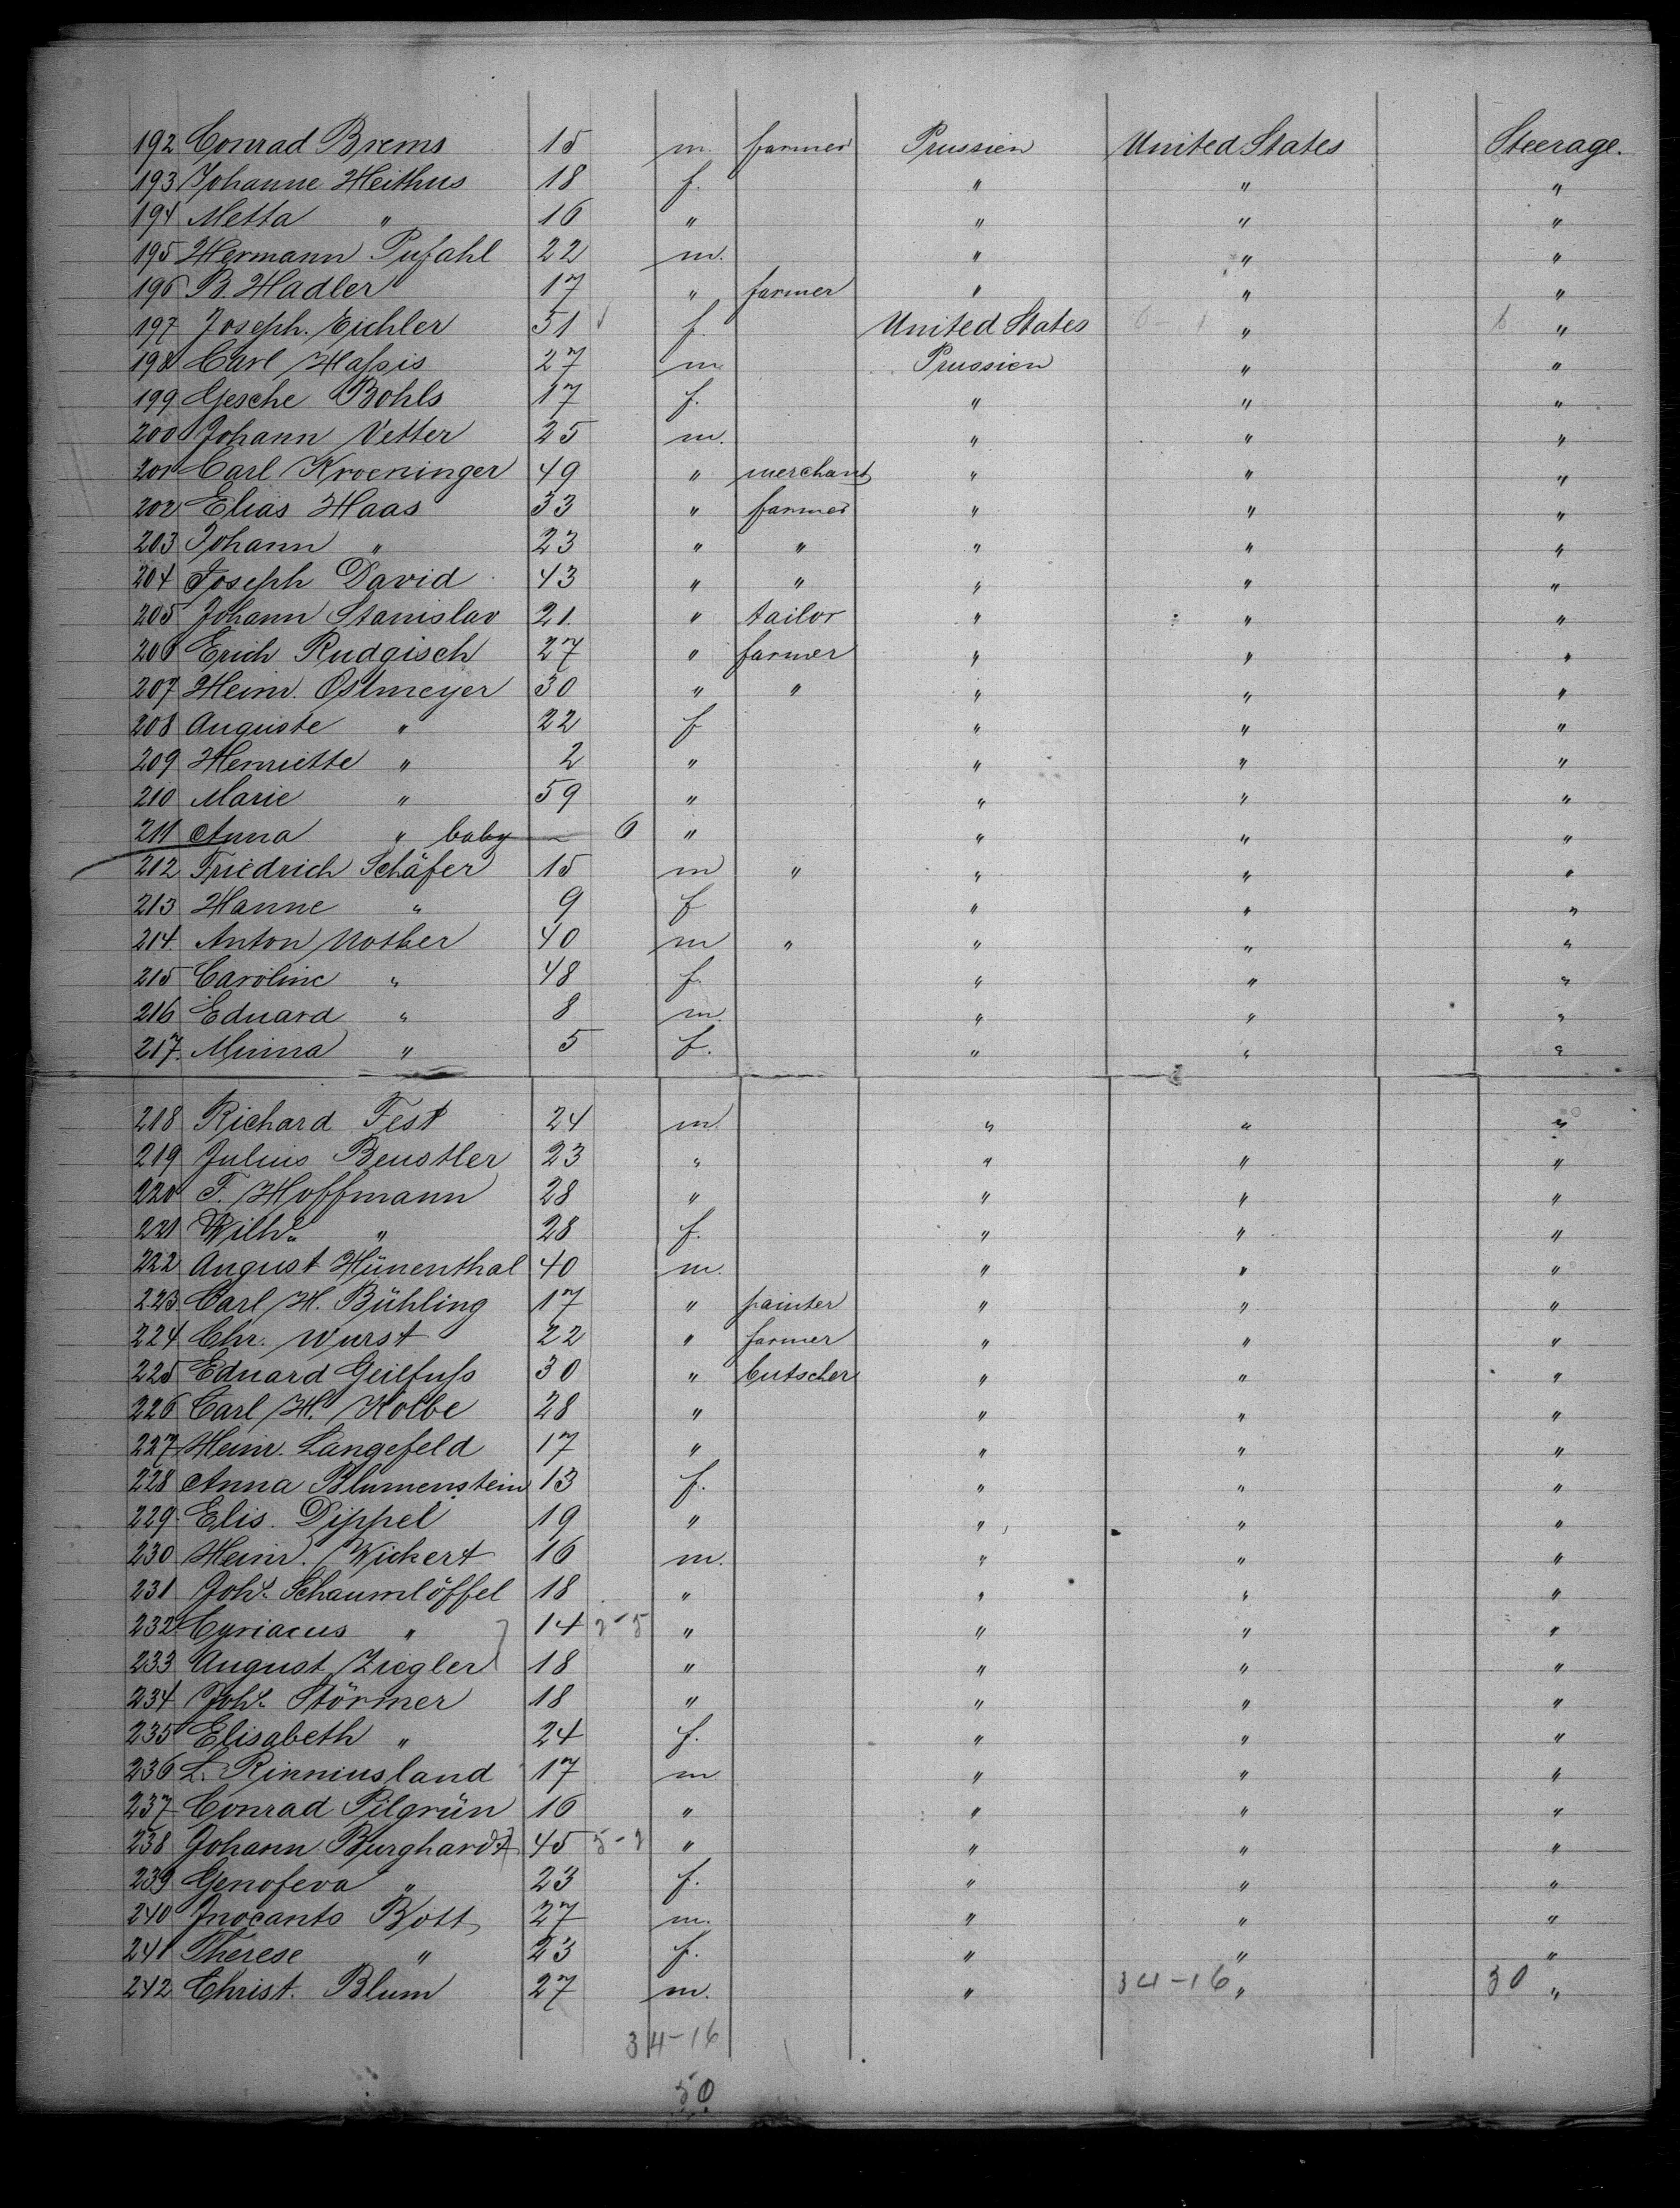 192 Conrad Brems 15 m. farmer Prussien United States Steerage.
193 Johanne Heithus 18 f. " " "
194 Metta " 16 " " " "
195 Hermann Pufahl 22 m. " " "
196 B. Hadler 17 " farmer " " "
197 Joseph. Eichler 51 f. United States " "
198 Carl Haſsis 27 m. Prussien " "
199 Gesche Bohls 17 f. " " "
200 Johann Vetter 25 m. " " "
201 Carl Kroeninger 49 " merchant " " "
202 Elias Haas 33 " farmer " " "
203 Johann " 23 " " " " "
204 Joseph David 43 " " " " "
205 Johann Stanislav 21. " tailor " " "
206 Erich Rudgisch 27 " farmer " " "
207 Heinr. Ostmeyer 30 " " " " "
208 Auguste " 22 f " " "
209 Henriette " 2 " " " "
210 Marie " 59 " " " "
211 Anna " baby — 6 " " " "
212 Friedrich Schäfer 15 m " " " "
213 Hanne " 9 f " " "
214. Anton 40 m " " " "
215 Caroline " 48 f. " " "
216 Eduard " 8 m. " " "
217. Minna " 5 f. " " "
218 Richard Fest 24 m. " " "
219 Julius Beustler 23 " " " "
220 F. Hoffmann 28 " " " "
221 Wilh. " 28 f. " " "
222 August Hünenthal 40 m. " " "
223. Carl H. Bühling 17 " painter " " "
224 Chr. Wurst 22 " farmer " " "
225 Eduard Geilfuſs 30 " butscher " " "
226 Carl H. Kolbe 28 " " " "
227 Heinr. Langefeld 17 " " " "
228 Anna Blumenstein 13 f. " " "
229. Elis. Dippel 19 " " " "
230 Heinr. Wickert 16 m. " " "
231 Joh. Schaumlöffel 18 " " " "
232 Cyriacus " 14 2-5 " " " "
233 August Ziegler 18 " " " "
234 Joh. Störmer 18 " " " "
235 Elisabeth " 24 f. " " "
236 L. Rinniusland 17 m " " "
237 Conrad Pilgrün 16 " " " "
238 Johann Burghardt 45 5-2 " " " "
239 Genofeva " 23 f. " " "
240 Inocants Bott 27 m. " " "
241 Therese " 23 f. " " "
242 Christ. Blum 27 m. " 34-16 " 30 "
34-16
50